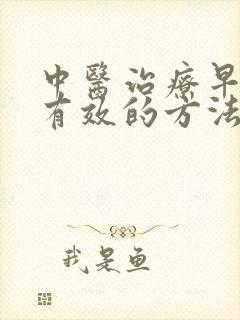 中醫治療早
有效的方法
我是魚